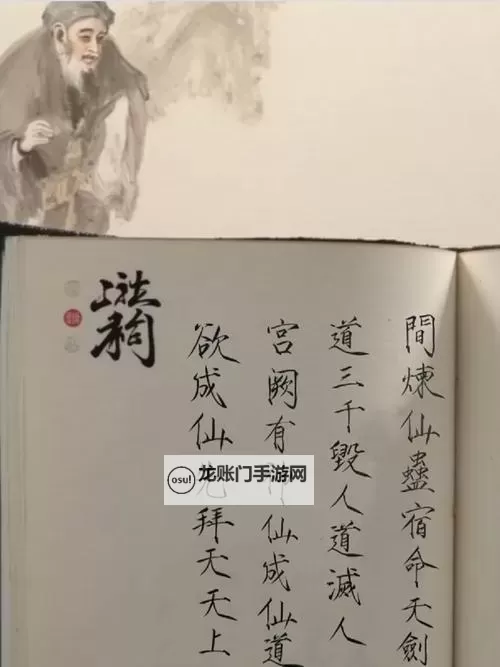 欲成仙拜天天上
宮闕有仙成仙道
道三千毀人道滅人
間煉仙蠱宿命天劍
osu! 龙账门手游网